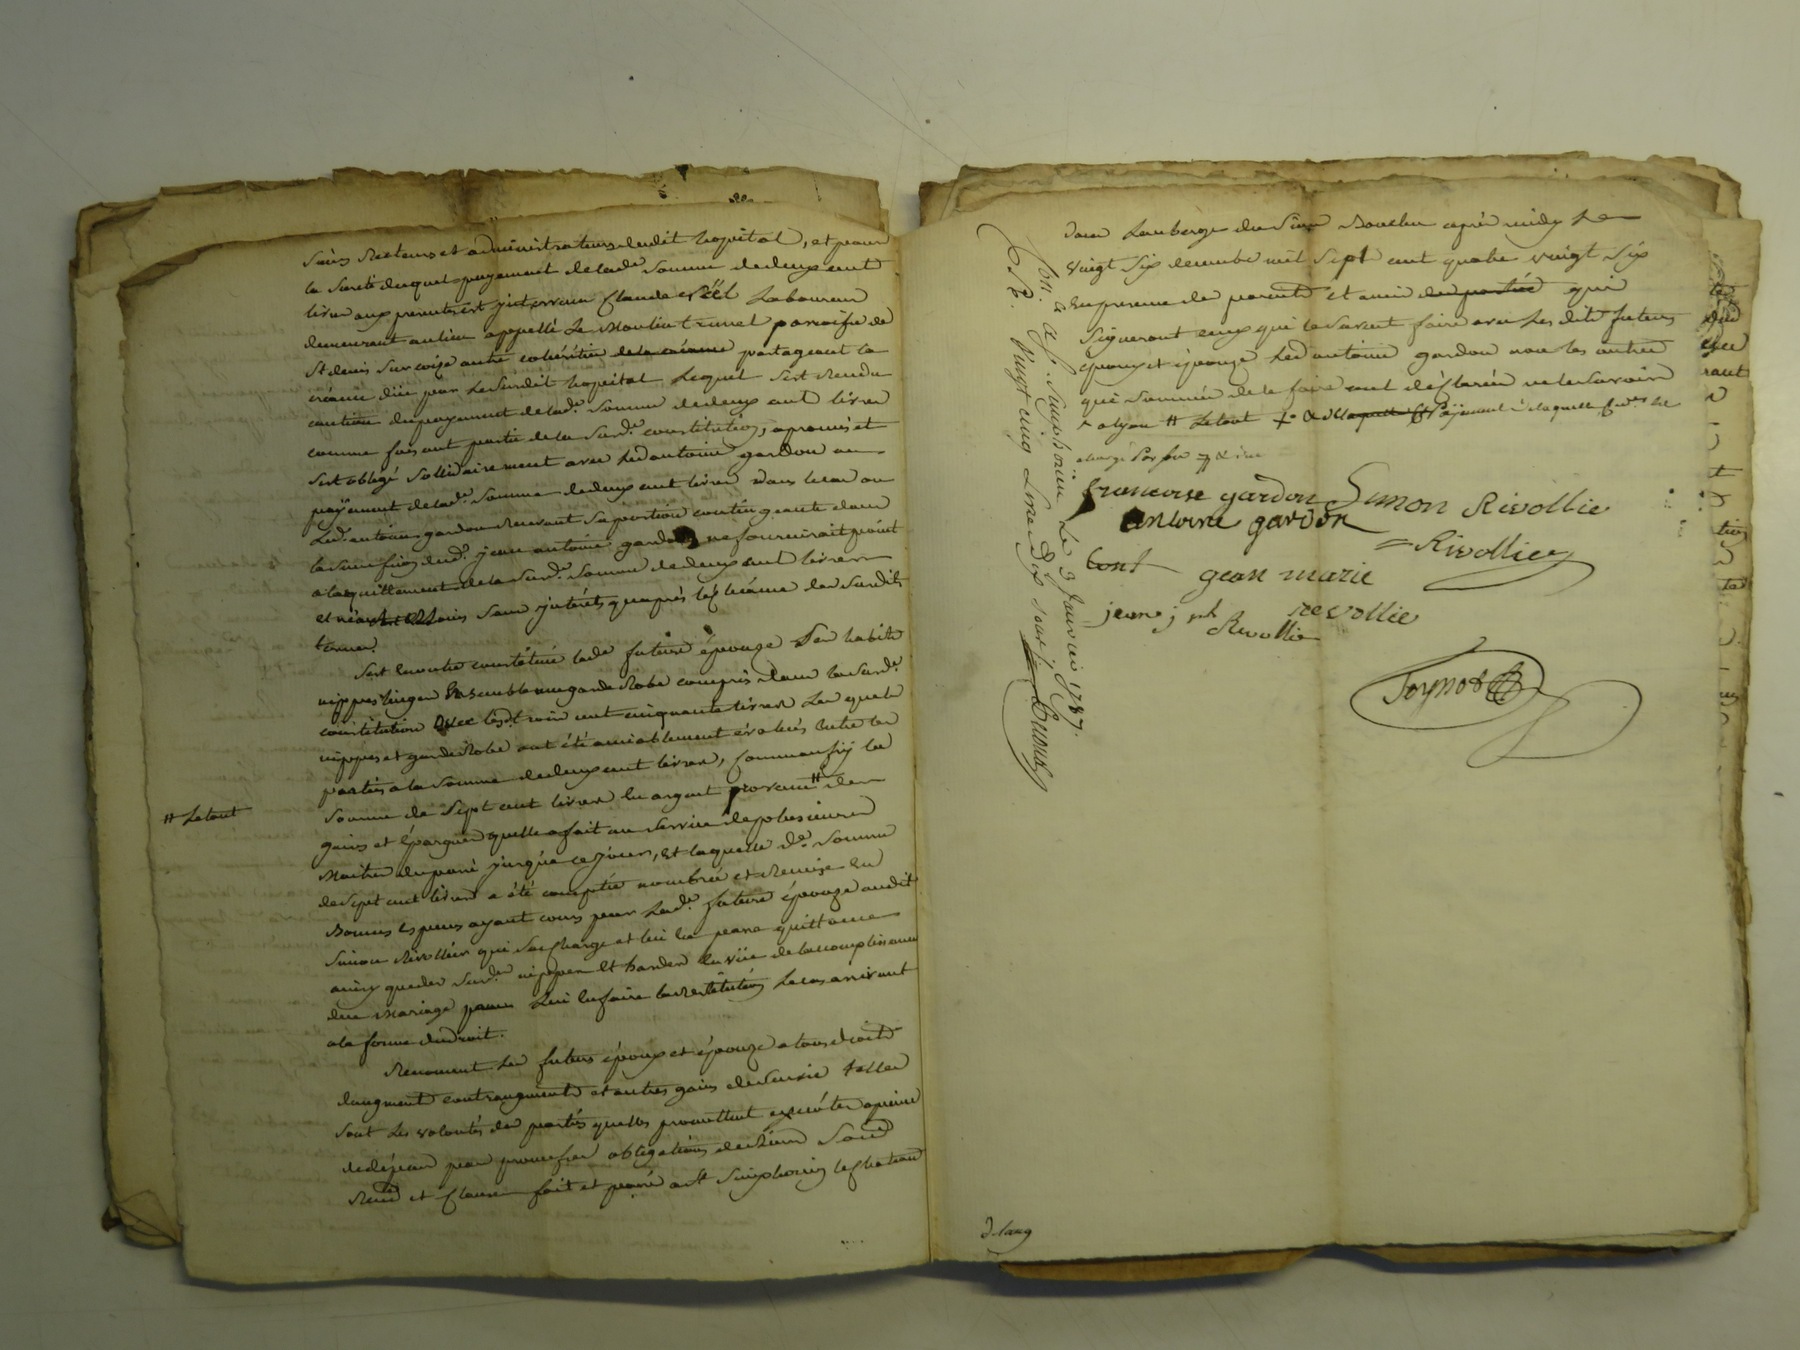 Sieurs Recteurs et administrateurs dudit hopital, et pour
la sureté duquel payement de lade somme de deux cent
livres aux presentes est intervenu Claude Noël Laboureur
demeurant au lieu appellé Le Moulin trunel paroisse de
St denis sur coize autre cohéritier partageant la
créance düe par le susdit hopital lequel s'est Rendu
caution du payement de lade somme de deux cent livres
comme faisant partie de la susde constitution, a promis et
s'est obligé sollidairement avec led antoine gardon au
payement de lade somme de deux cent livres dans le cas ou
led antoine gardon Recevant sa portion contingente dans
la succession dud jean antoine gardon ne fourniroit point
a l'acquittement de la susde somme de deux cent livres
et sans interets qu'après l'echéance des susdits
termes.
S'est en outre constitué lade future épouze Ses habits
nippes linges Ensemble une garde Robe compris dans la susde
constitution avec lesd trois cent cinquante livres Les quels
nippes et garde Robe ont été amiablement évalués entre les
parties a la somme de deux cent livres, comme aussy la
# Le tout
somme de Sept cent livres en argent provenu # des
gains et Épargnes quelle a fait au service de plusieurs
Maitres du passé jusqu'a ce jour, Et laquelle de somme
de sept cent livres a été comptée nombrée et Remise en
Bonnes especes ayant cours par lade future épouze audit
Simon Rivollier qui s'en charge et lui en passe quittance
ainsy que des susdes nippes Et hardes en vüe de l'accomplissement
du Mariage pour lui en faire la restitution le cas arrivant
a la forme du droit.
Renoncent les futurs époux et épouze a tous droits
d'augment contraugment et autres gains de survie telles
sont les volontés des parties quelles promettent exécuter a peine
de dépens par promesses obligations de biens Soud
Renond et clauses fait et passé a St Simphorien le chateau
dans L'auberge du Sieur Boucher après midy Le
vingt Six decembre mil Sept cent quatre vingt Six
En presence de parents et amis des parties qui
signeront ceux qui le savent faire avec les dits futurs
époux et épouze led antoine gardon non les autres
qui sommés de le faire ont déclarés ne le savoir
# Le tout
francoise gardon Simon Rivollie
antoine gardon
= Rivollier
gean marie
revollie
jean j ph
Revollie
Poynot
Con. a St. Simphorien Le 3 janvier 1787.
R. vingt cinq Livres Dix sous